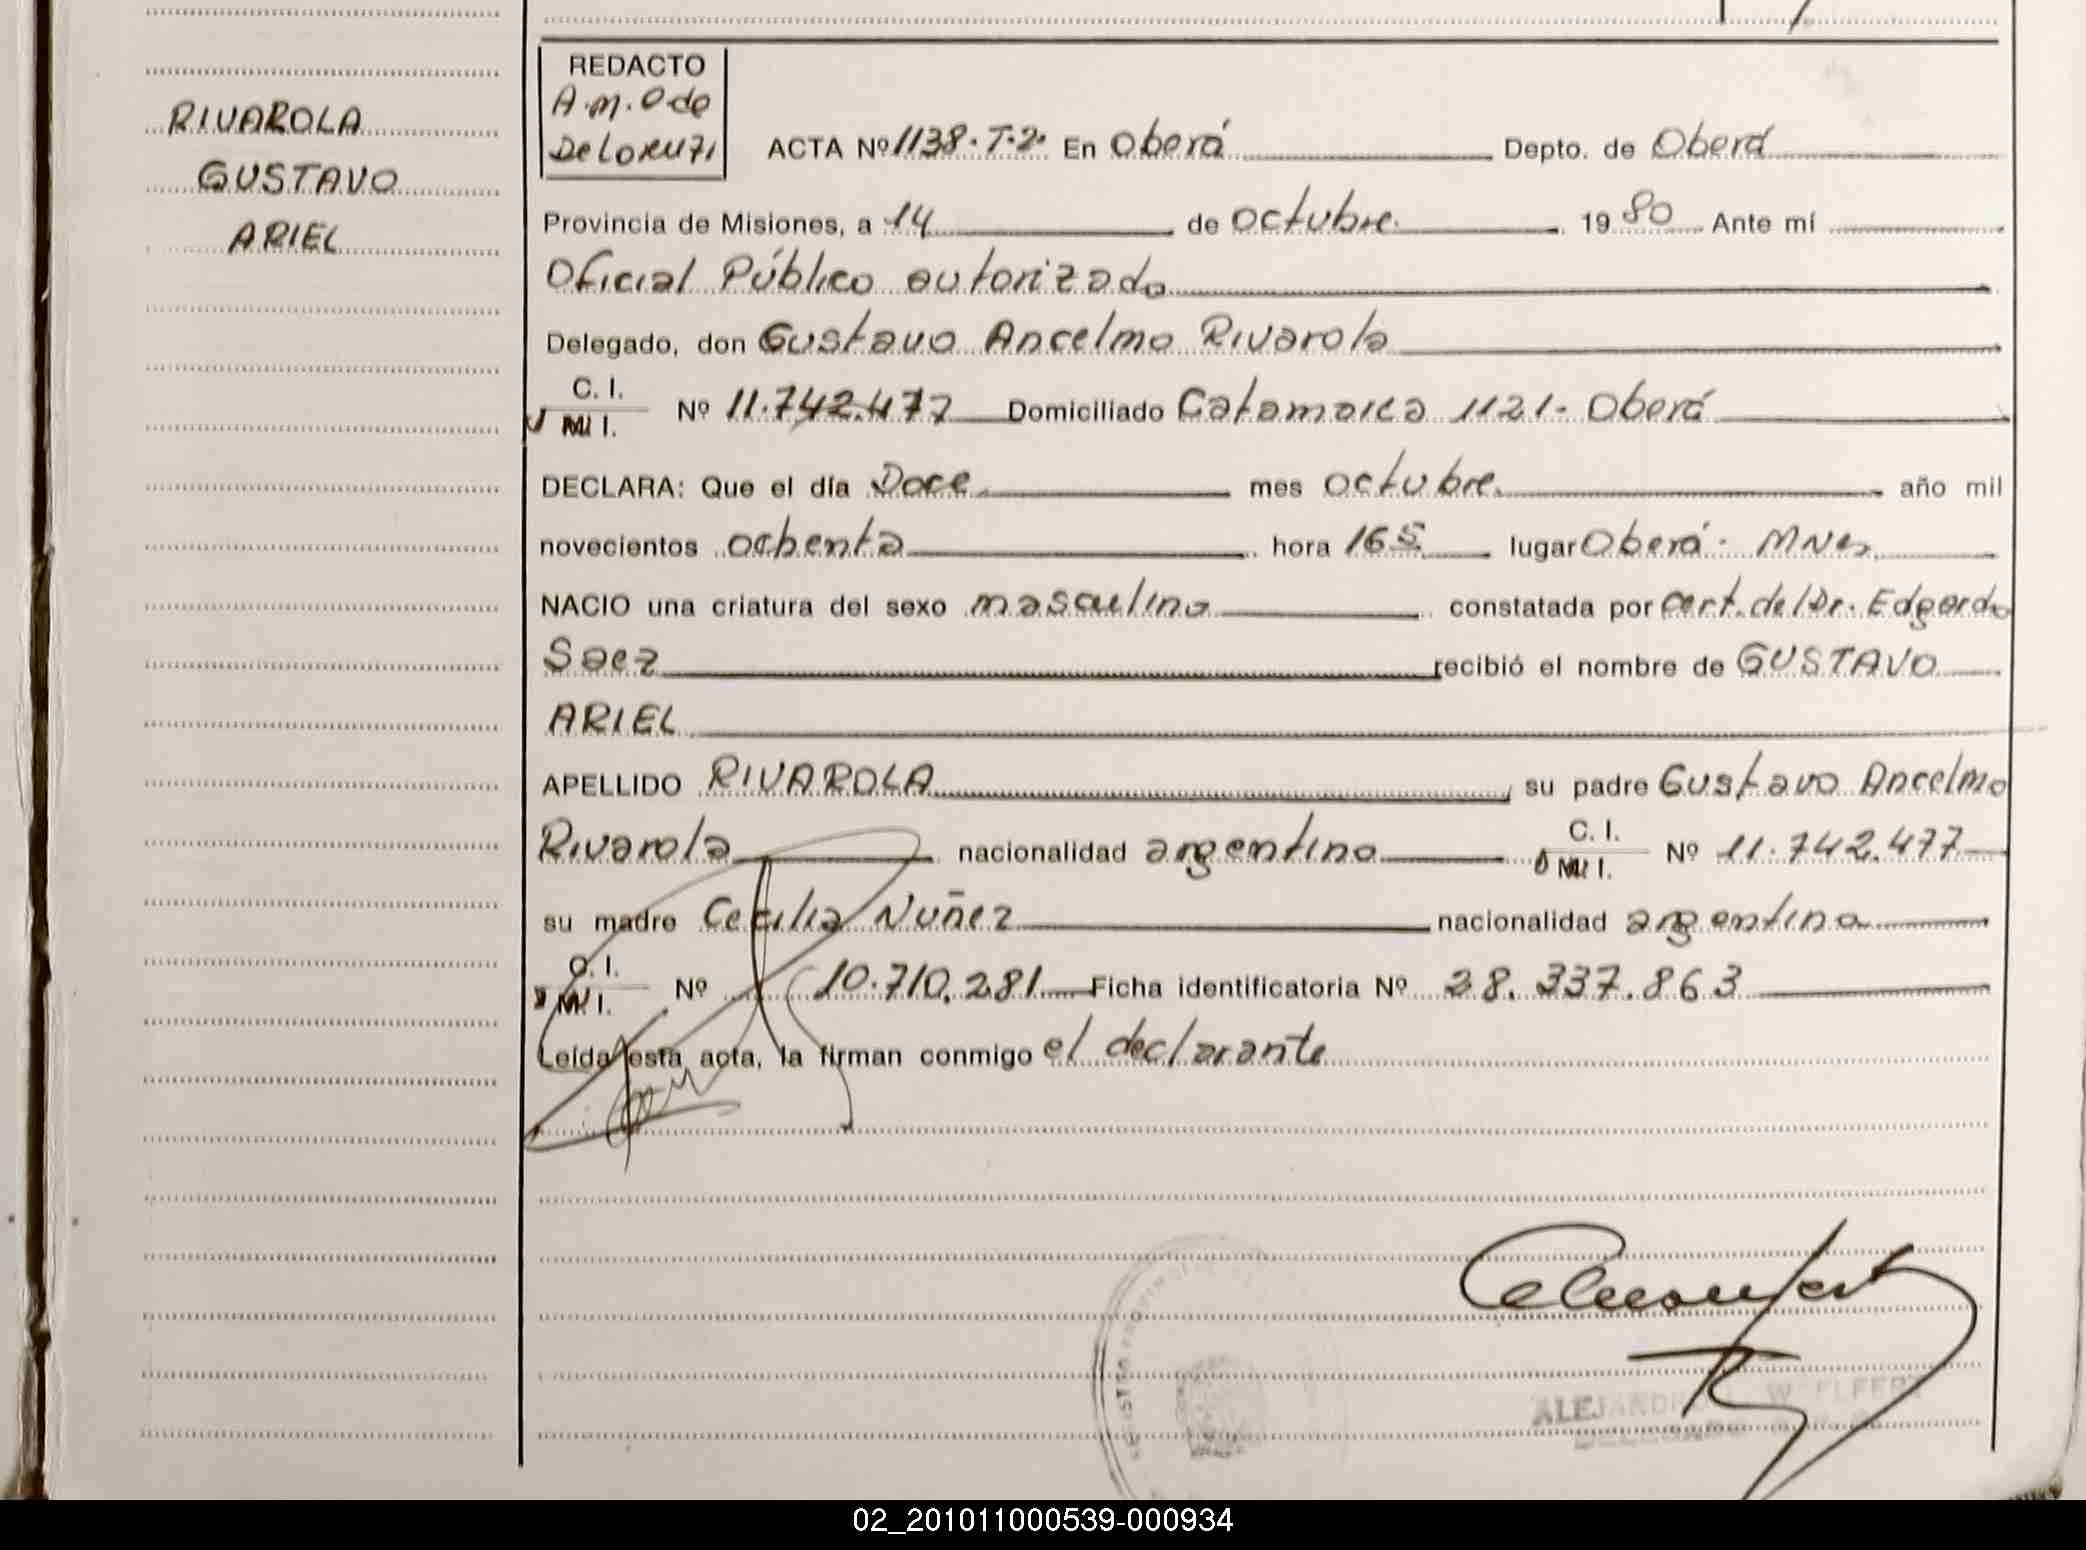 RIVAROLA
GUSTAVO
ARIEL
REDACTO
A.M.O de
DeLorenzi
ACTA Nº 1138.T.2. En Oberá Depto. de Oberá
Provincia de Misiones, a 14 de octubre. 19 80 Ante mí
Oficial Público autorizado
Delegado, don Gustavo Ancelmo Rivarola
C. I.
M. I. Nº 11.742.477 Domiciliado Catamarca 1121- Oberá
DECLARA: Que el día Doce mes octubre. año mil
novecientos ochenta hora 16 5 lugar Oberá- Mnes
NACIO una criatura del sexo masculino constatada por cert. del Dr. Edgardo
Saez recibió el nombre de GUSTAVO
ARIEL
APELLIDO RIVAROLA su padre Gustavo Ancelmo
Rivarola nacionalidad argentino C. I.
M. I. Nº 11.742.477
su madre Cecilia Nuñez nacionalidad argentina
C. I.
M. I. Nº 10.710.281 Ficha identificatoria Nº 28.337.863
Leída esta acta, la firman conmigo el declarante
ALEJANDRO WELFERT
DELEGADO
02_201011000539-000934